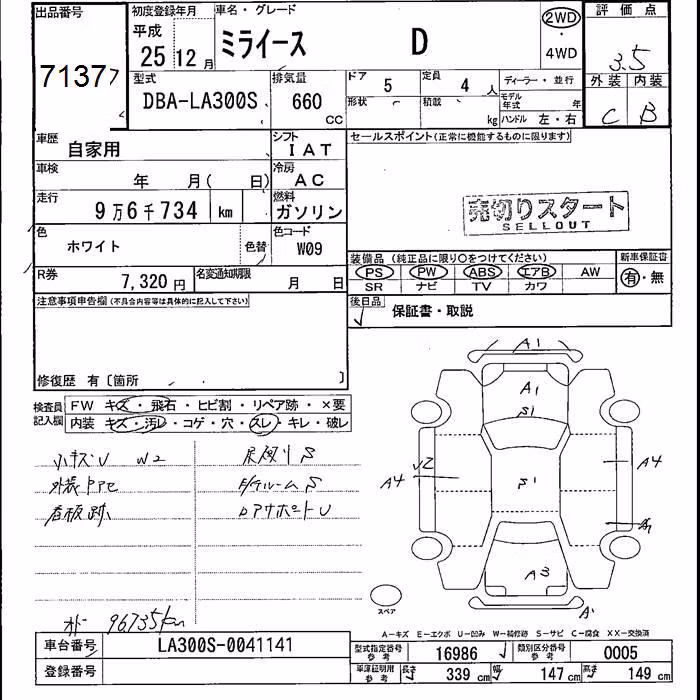 出品番号 初度登録年月 車名・グレード 評価点
7137
平成 25年 12月 ミライース D 2WD・4WD 3.5
型式 DBA-LA300S 排気量 660cc ドア 5 定員 4人 ディーラー・並行 外装 C 内装 B
形状 積載 kg モデル年式 年 ハンドル 左・右
車歴 自家用 シフト IAT セールスポイント(正常に機能するものに限ります)
車検 年 月( 日) 冷房 AC
走行 9万6千734 km 燃料 ガソリン
売切りスタート
SELLOUT
色 ホワイト 色替 色コード W09
装備品(純正品に限り○をつけてください) 新車保証書
PS PW ABS エアB AW 有・無
SR ナビ TV カワ
R券 7,320円 名変通知期限 月 日
後日品 保証書・取説
注意事項申告欄(不具合内容等は具体的に記入して下さい)
修復歴 有〔箇所 〕
検査員記入欄 FW キズ・飛石・ヒビ割・リペア跡・×要
内装 キズ・汚レ・コゲ・穴・スレ・キレ・破レ
小キズU W2
看板跡
96735km
A1
A1
S1
U2
A4
S1
A4
A3
スペア
A―キズ E―エクボ U―凹み W―補修跡 S―サビ C―腐食 XX―交換済
車台番号 LA300S-0041141 型式指定番号 参考 16986 類別区分番号 参考 0005
登録番号 車庫証明用 参考 長さ 339cm 幅 147cm 高さ 149cm